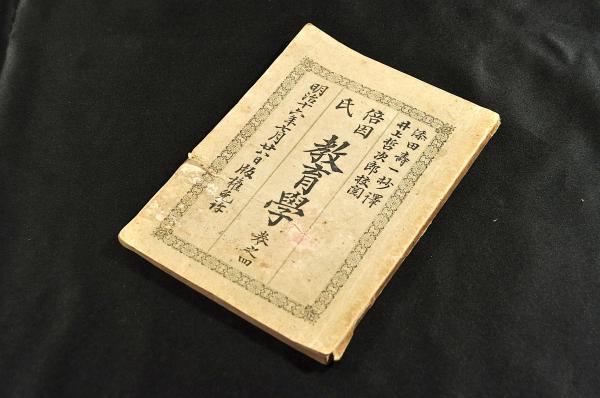 添田壽一抄譯
井上哲次郎挍閲
倍因氏
教育學 卷之四
明治十六年六月廿六日版權免許